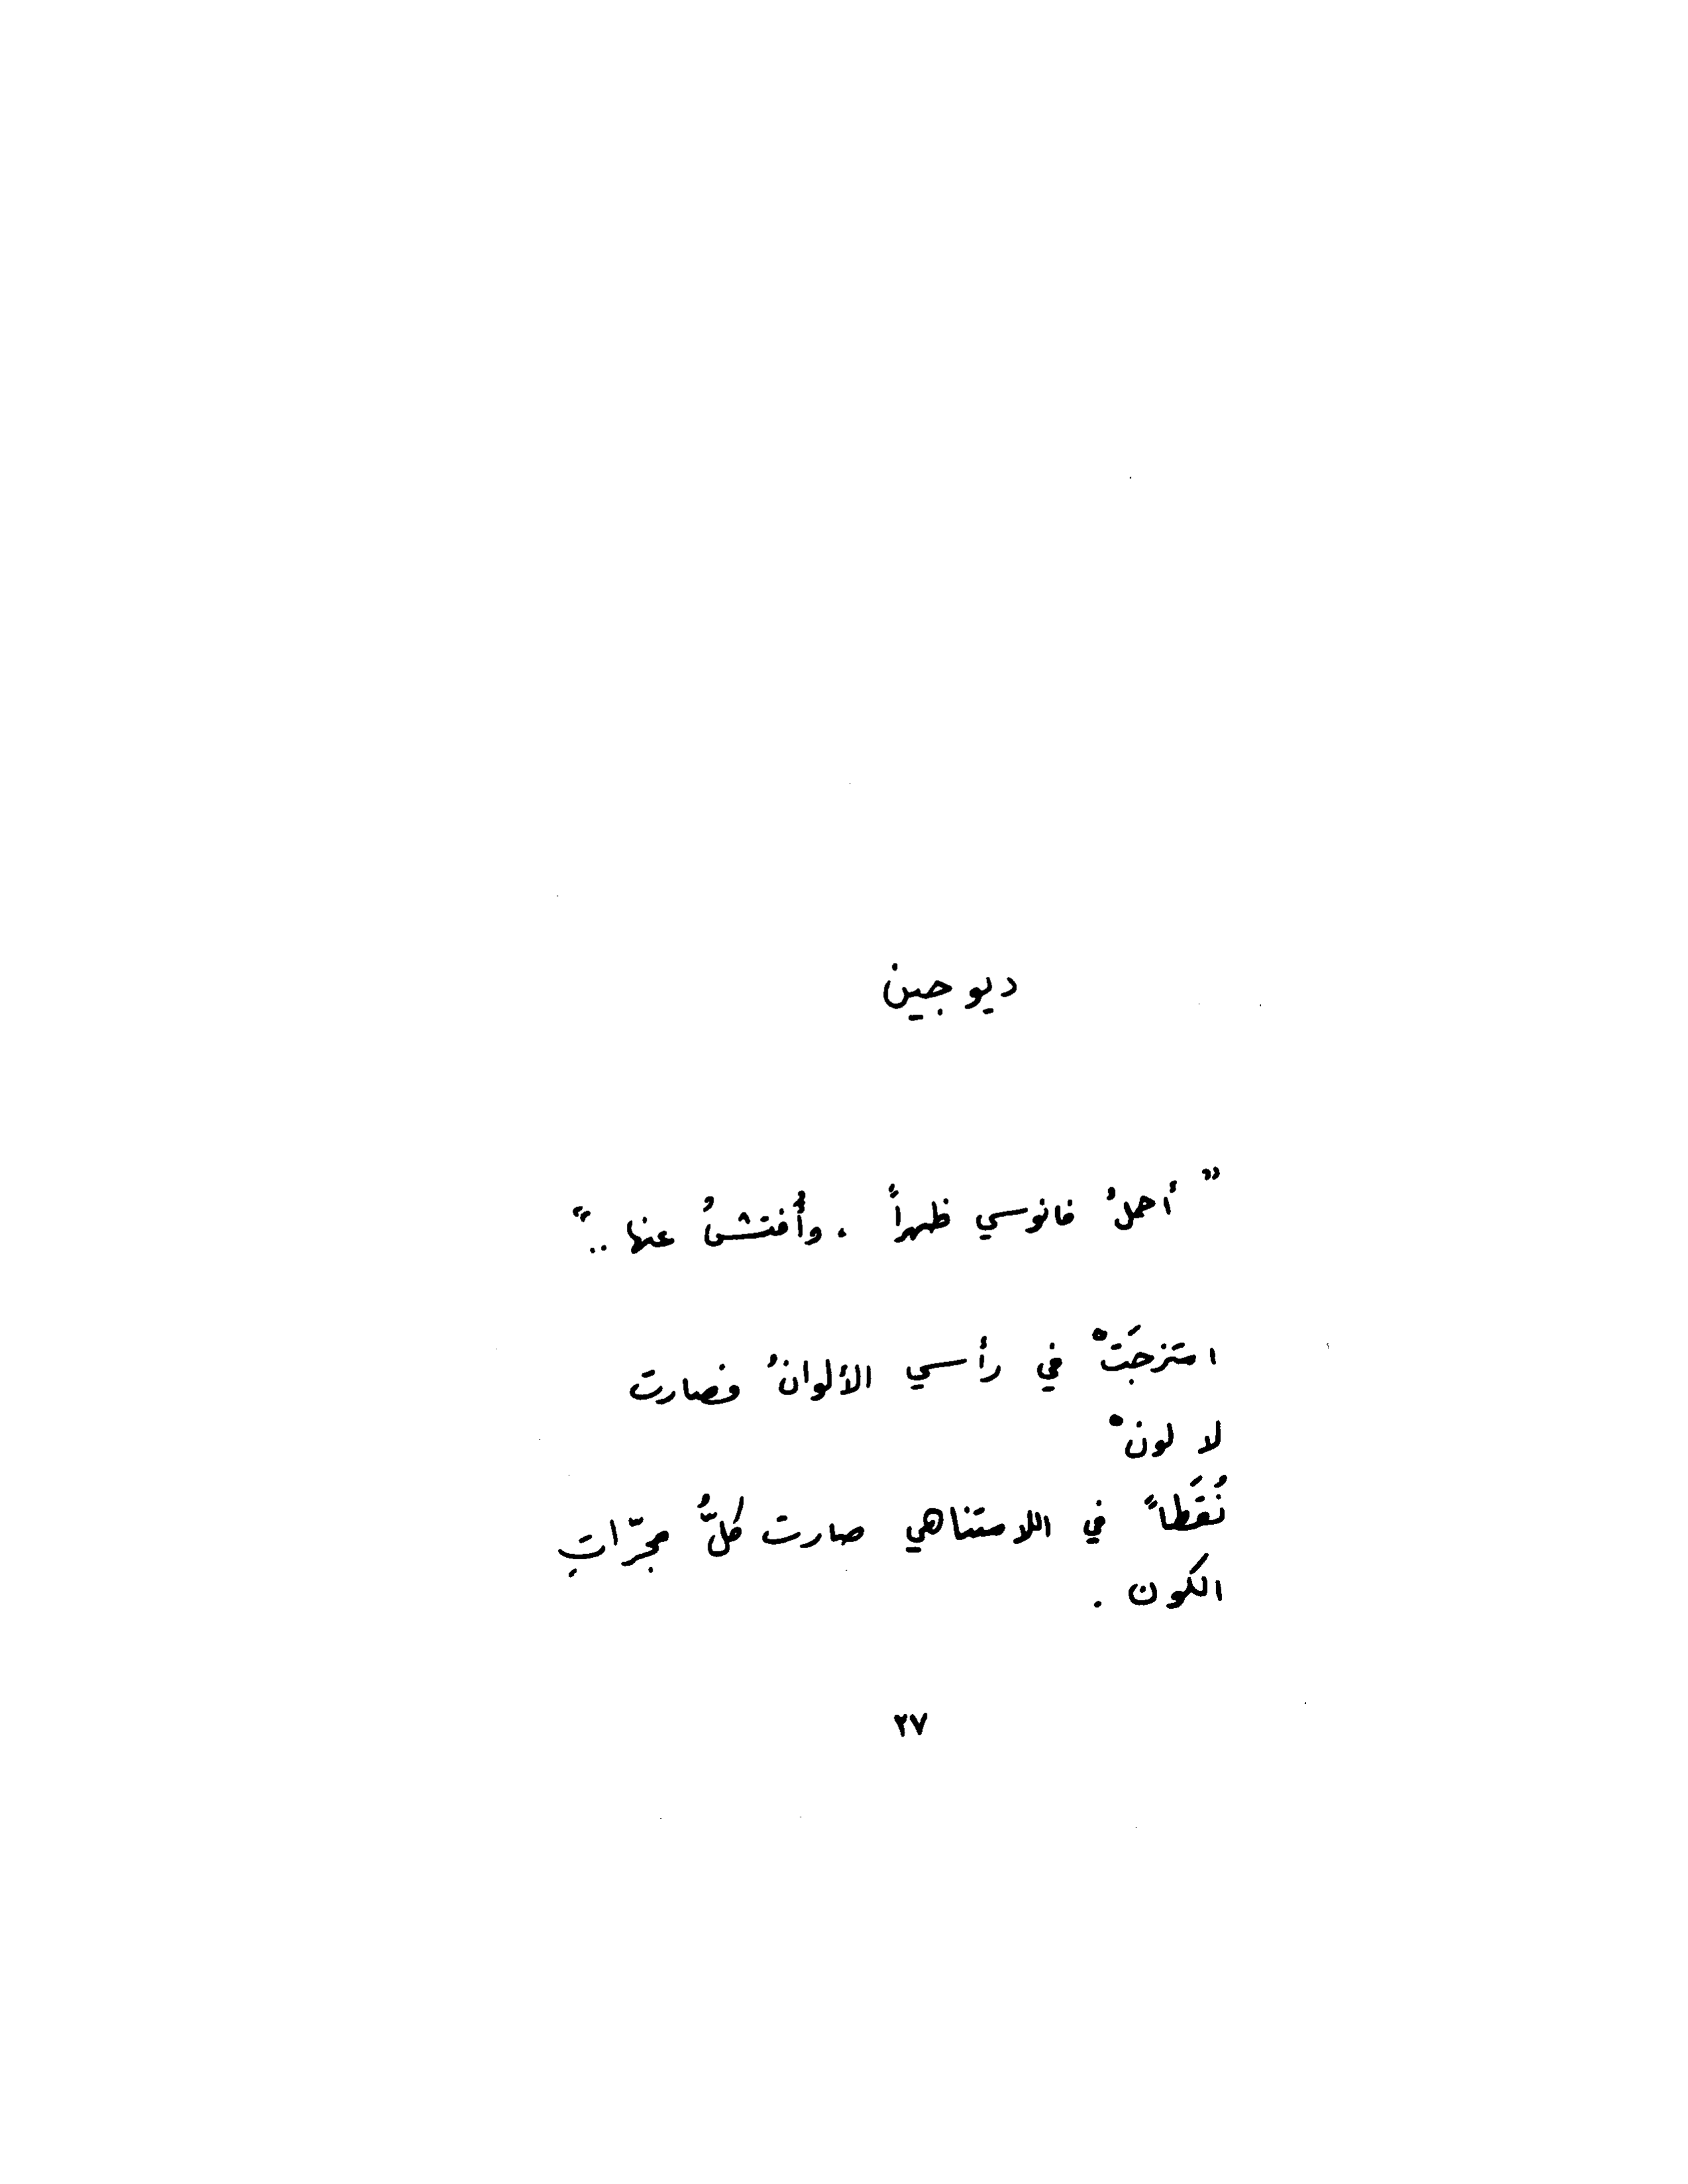 ديوجين
” أحملُ فانوسي ظهراً . وأُفتشُ عنها .. “
امتزجَتْ في رأسي الألوانُ فصارت
لا لونْ
نُقَطاً في اللامتناهي صارت كلُّ مجرّاتِ
الكون .
٢٧